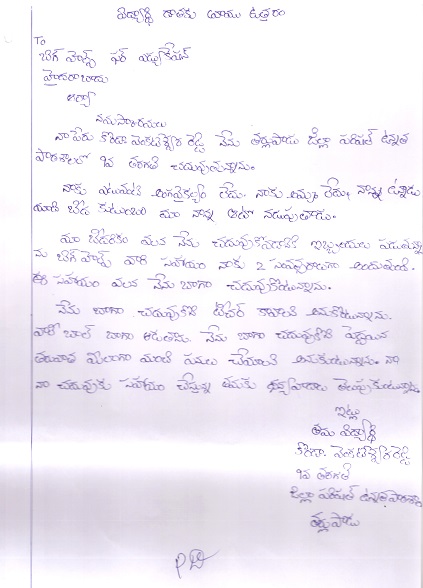 విద్యార్థి దాతకు వ్రాయు ఉత్తరం
To
బిగ్ హెల్ప్ ఫర్ ఎడ్యుకేషన్
హైదరాబాదు
ఆర్యా
నమస్కారములు
నా పేరు కొరివి వెంకటేశ్వర రెడ్డి నేను తర్లుపాడు జిల్లా పరిషత్ ఉన్నత
పాఠశాలలో 9వ తరగతి చదువుచున్నాను.
నాకు ఎటువంటి అంగవైకల్యం లేదు. నాకు అమ్మ లేదు, నాన్న ఉన్నాడు
మాది బీద కుటుంబం మా నాన్న ఆటో నడుపుతాడు.
మా బీదరికం వలన నేను చదువుకోవడానికి ఇబ్బందులు పడుతున్నా
ను బిగ్ హెల్ప్ వారి సహాయం నాకు 2 సంవత్సరాలుగా అందుతుంది.
ఈ సహాయం వలన నేను బాగా చదువుకొంటున్నాను.
నేను బాగా చదువుకొని టీచర్ కావాలని అనుకొంటున్నాను.
వాలీబాల్ బాగా ఆడుతాను. నేను బాగా చదువుకొని పెద్దయిన
తరువాత మీలాగా మంచి పనులు చేయాలని అనుకుంటున్నాను. నా
నా చదువుకు సహాయం చేస్తున్న తమకు ధన్యవాదాలు తెలుపుకుంటున్నాను.
ఇట్లు
తమ విద్యార్థి
కొరివి. వెంకటేశ్వర రెడ్డి
9వ తరగతి
జిల్లా పరిషత్ ఉన్నత పాఠశాల
తర్లుపాడు